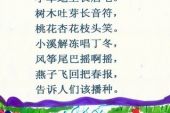 树木吐芽长音符，
桃花杏花枝头笑。
小溪解冻唱丁冬，
风筝尾巴摇啊摇，
燕子飞回把春报，
告诉人们该播种。